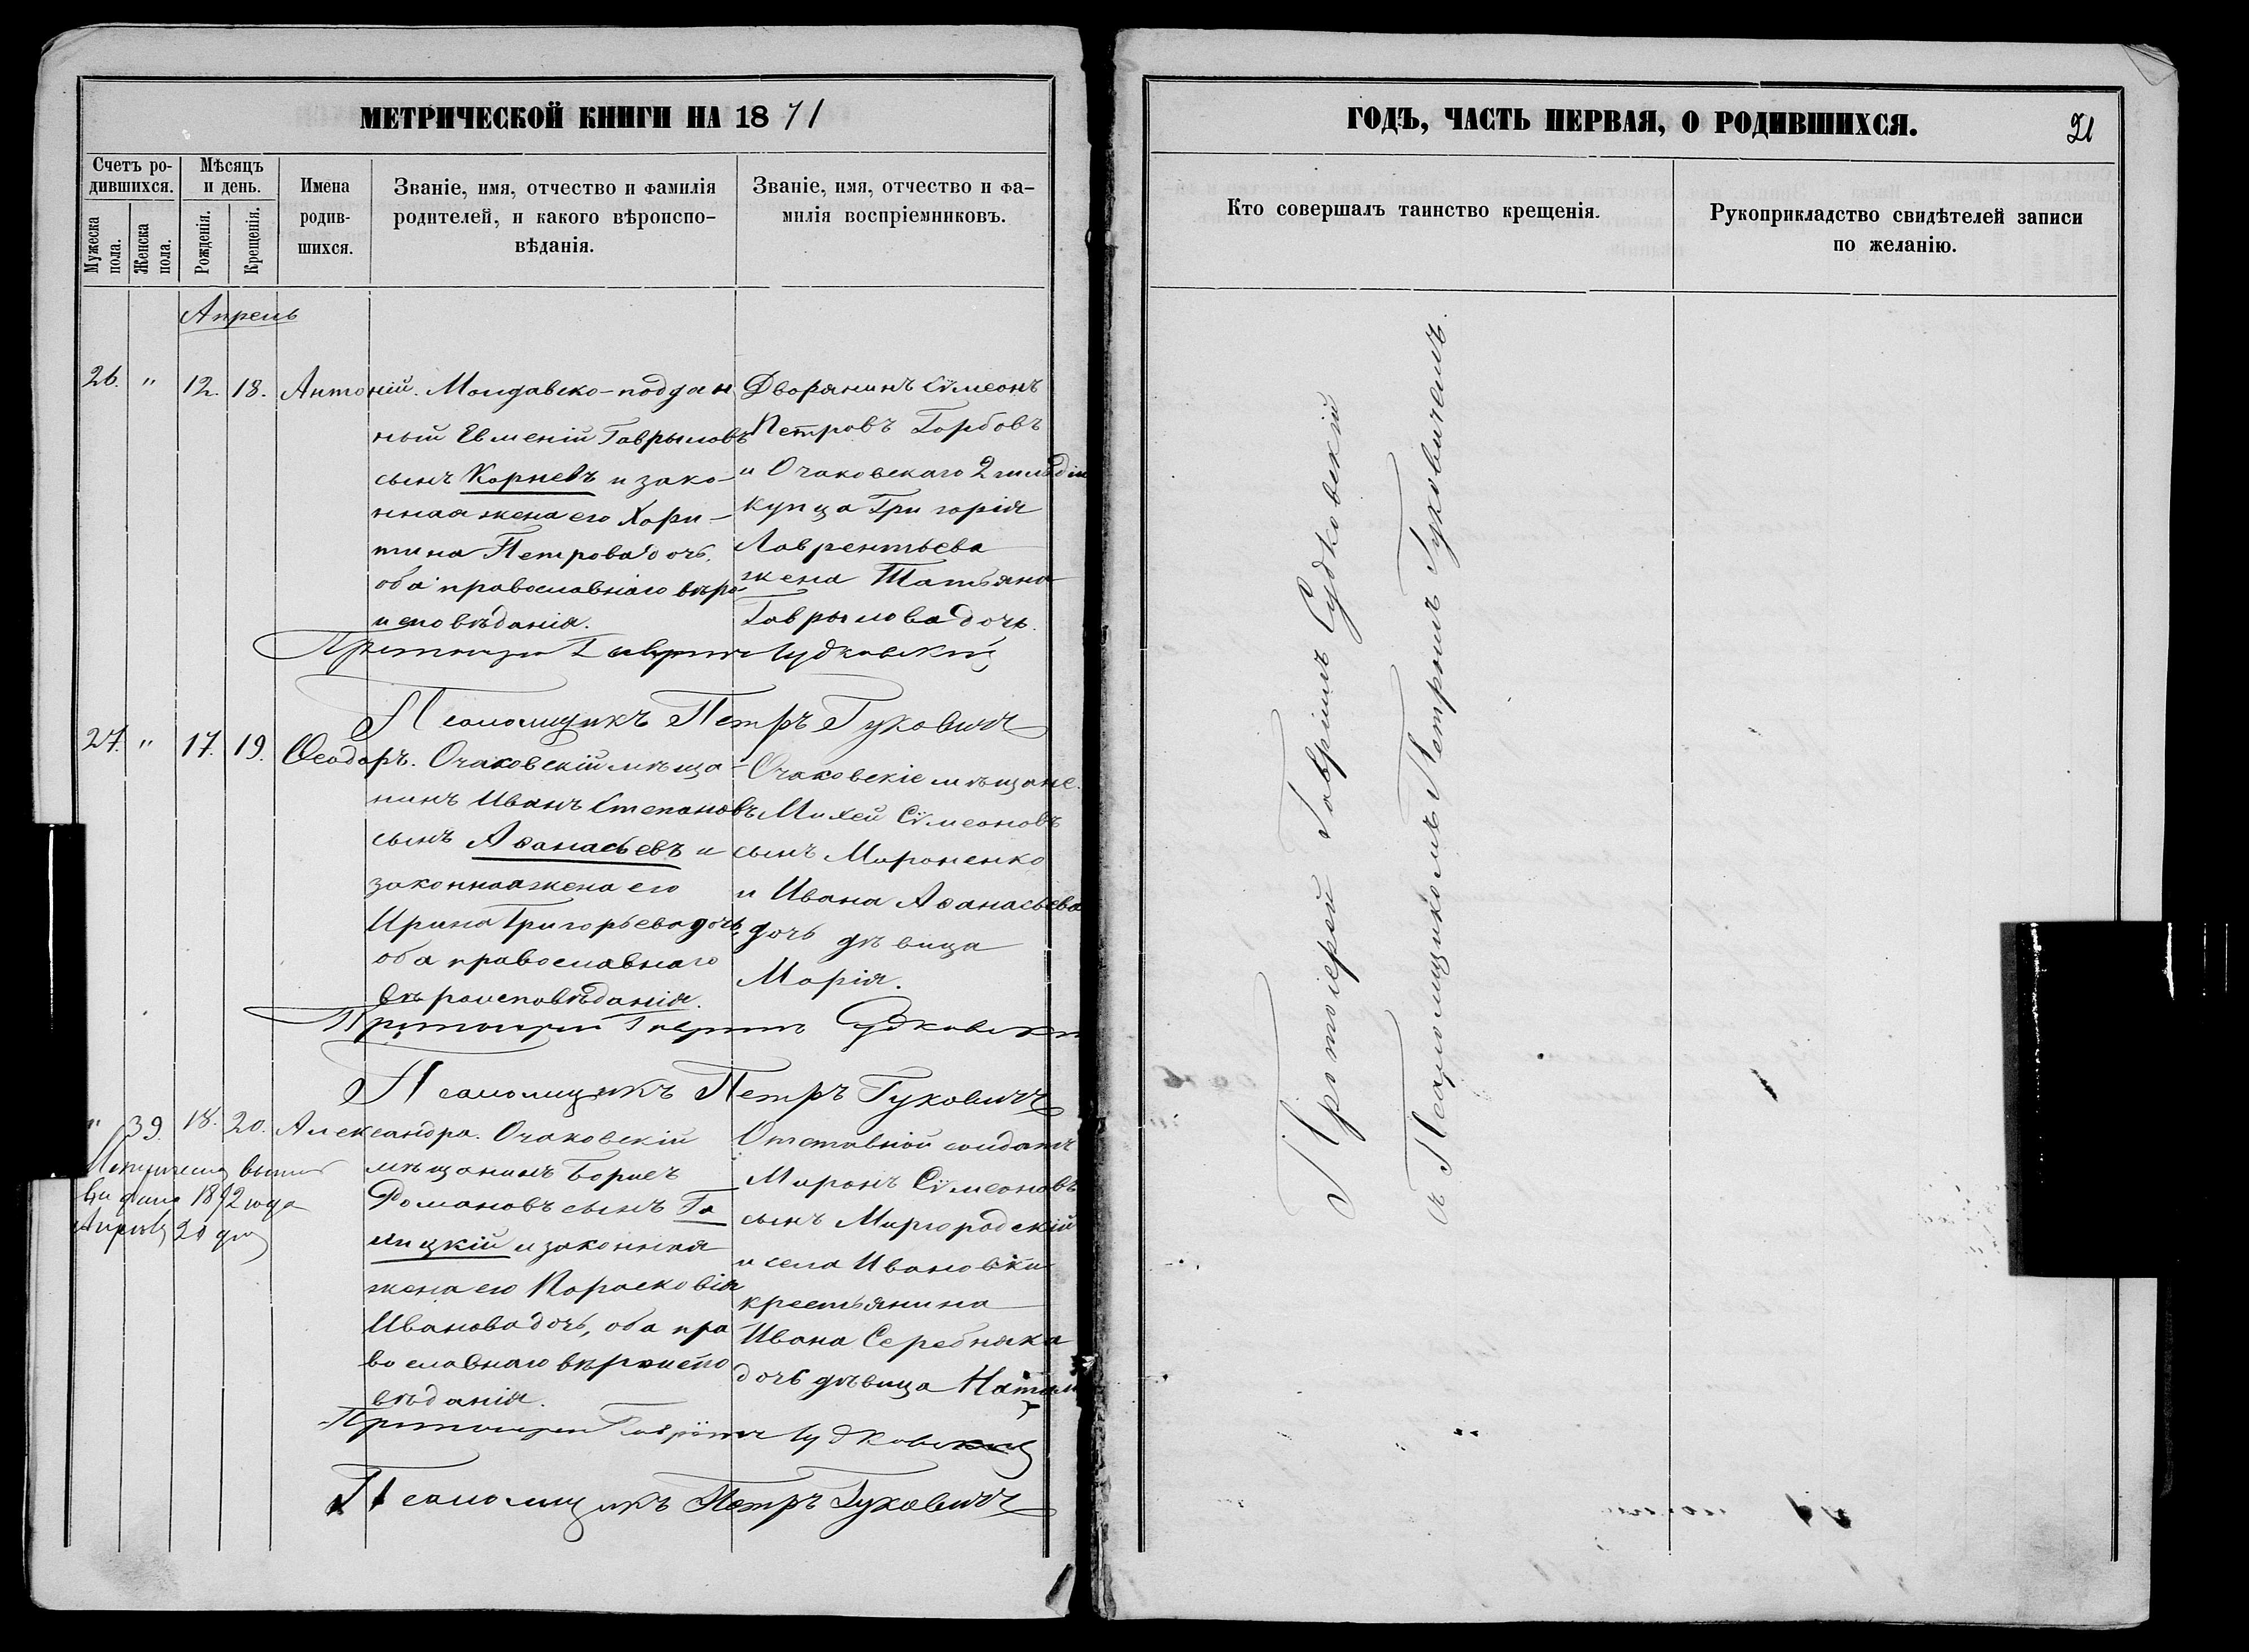 МЕТРИЧЕСКОЙ КНИГИ НА 1871
Счетъ ро-
дившихся.
Мужеска пола.
Женска пола.
Мѣсяцъ
и день.
Рожденія.
Крещенія.
Имена
родив-
шихся.
Званіе, имя, отчество и фамилія
родителей, и какого вѣроиспо-
вѣданія.
Званіе, имя, отчество и фа-
милія воспріемниковъ.
Апрель
26. " 12. 18. Антоній. Молдавско-поддан
ный Евменій Гаврыловъ
сынъ Корневъ и зако-
нная жена его Хари-
тина Петрова дочь.
оба православнаго вѣро
исповѣданія.
Дворянинъ Сѵмеонъ
Петровъ Горбовъ
и Очаковскаго 2 гильдіи
купца Григорія
Лаврентьева
жена Татьяна
Гаврылова дочь.
Протоіерей Гавріилъ Судковскій
Псаломщикъ Петръ Гуковичъ
27. " 17. 19. Ѳеодоръ. Очаковскій мѣща-
нинъ Иванъ Степановъ
сынъ Аѳанасьевъ и
законная жена его
Ирина Григорьева дочь,
оба православнаго
вѣроисповѣданія.
Очаковскіе мѣщане:
Михей Сѵмеоновъ
сынъ Мироненко
и Ивана Аѳанасьева
дочь дѣвица
Марія.
Протоіерей Гавріилъ Судковскій
Псаломщикъ Петръ Гуковичъ
" 39. 18. 20. Александра. Очаковскій
мѣщанинъ Борисъ
Романовъ сынъ Га
лицкій и законная
жена его Парасковія
Иванова дочь, оба пра
вославнаго вѣроиспо
вѣданія.
Отставной солдатъ
Миронъ Сѵмеоновъ
сынъ Миргородскій
и села Ивановки
крестьянина
Ивана Серебняка
дочь дѣвица
1872 года
Протоіерей Гавріилъ Судковскій
Псаломщикъ Петръ Гуковичъ
ГОДЪ, ЧАСТЬ ПЕРВАЯ, О РОДИВШИХСЯ.
21
Кто совершалъ таинство крещенія.
Рукоприкладство свидѣтелей записи
по желанію.
Протоіерей Гавріилъ Судковскій
съ Псаломщикомъ Петромъ Гуковичемъ.